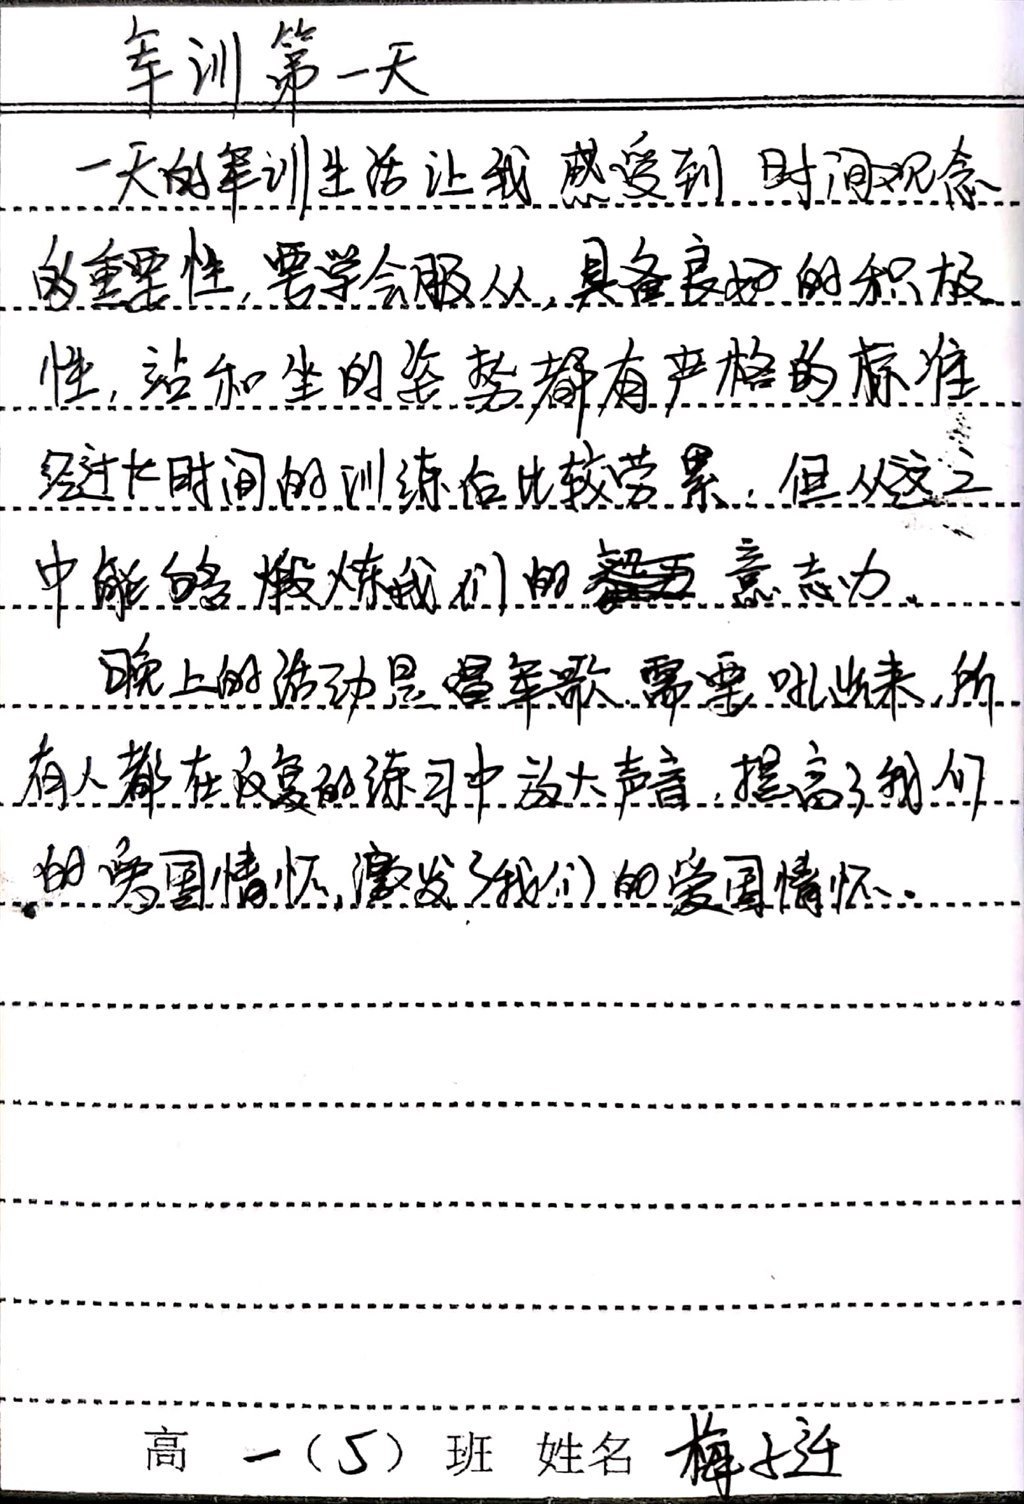 军训第一天
一天的军训生活让我感受到时间观念
的重要性,要学会服从,具备良好的积极
性,站和坐的姿势都有严格的标准
经过长时间的训练后比较劳累,但从这之
中能够煅炼我们的意志力。
晚上的活动是唱军歌,需要吼出来,所
有人都在反复的练习中放大声音,提高了我们
的爱国情怀,激发了我们的爱国情怀。
高一(5)班 姓名 梅